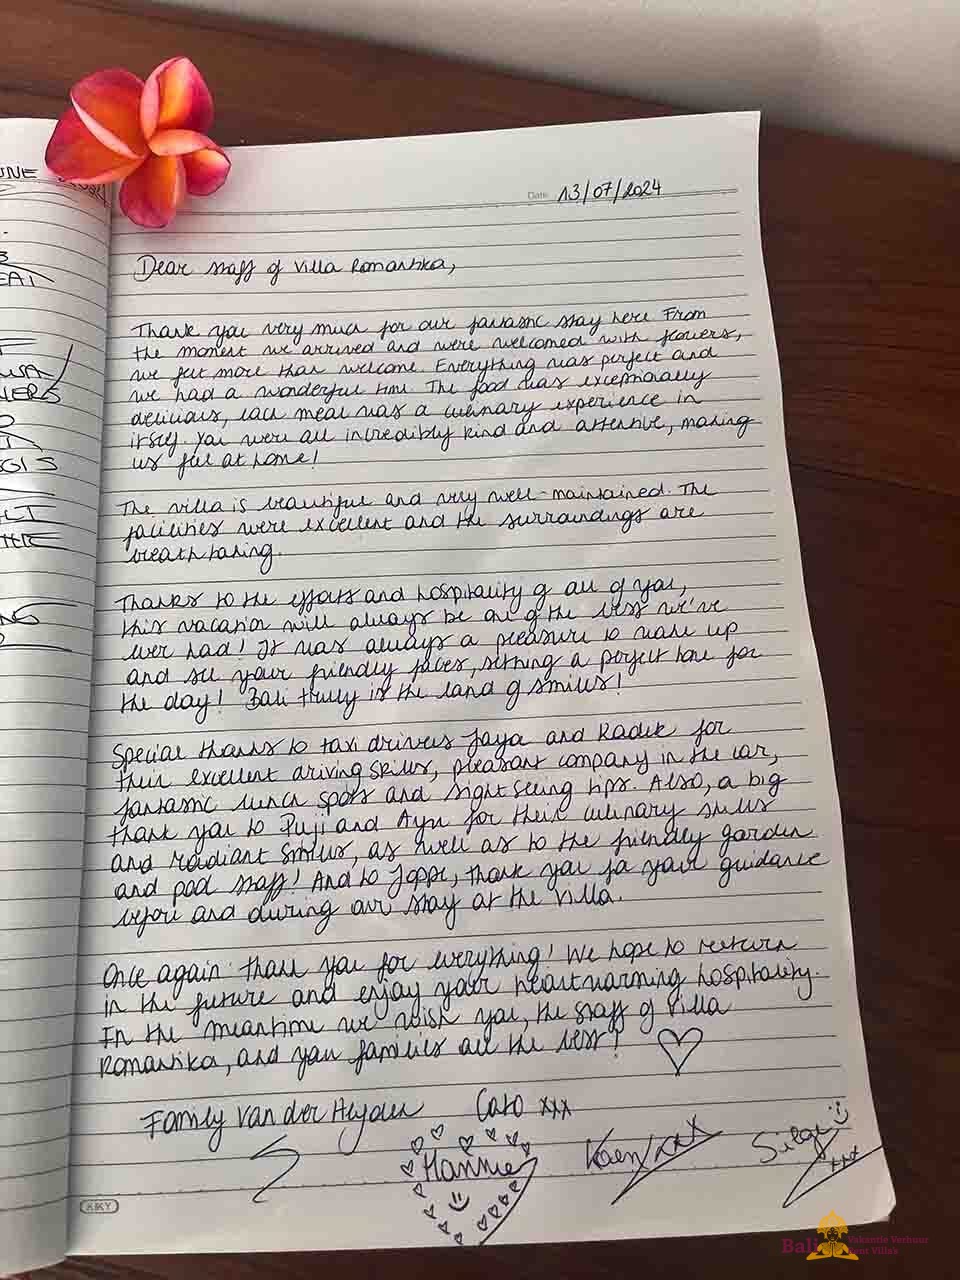 Date: 13/07/2024
Dear staff of Villa Romantika,
Thank you very much for our fantastic stay here From
the moment we arrived and were welcomed with flowers,
we felt more than welcome. Everything was perfect and
we had a wonderful time. The food was exceptionally
delicious, each meal was a culinary experience in
itself. You were all incredibly kind and attentive, making
us feel at home!
The villa is beautiful and very well-maintained. The
facilities were excellent and the surroundings are
breathtaking.
Thanks to the efforts and hospitality of all of you,
this vacation will always be one of the best we've
ever had! It was always a pleasure to wake up
and see your friendly faces, setting a perfect tone for
the day! Bali truly is the land of smiles!
Special thanks to taxi drivers Jaya and Kadek for
their excellent driving skills, pleasant company in the car,
fantastic lunch spots and sightseeing tips. Also, a big
thank you to Puji and Ayu for their culinary skills
and radiant smiles, as well as to the friendly garden
and pool staff! And to Joppe, thank you for your guidance
before and during our stay at the villa.
Once again thank you for everything! We hope to return
in the future and enjoy your heartwarming hospitality.
In the meantime we wish you, the staff of Villa
Romantika, and your families all the best!
Family Van der Heyden Cato xxx
Hannie Koen xxx Silge xxx
KIKY
UNE
EAT
NERS
GGIS
Bali Vakantie Verhuur
Villa's